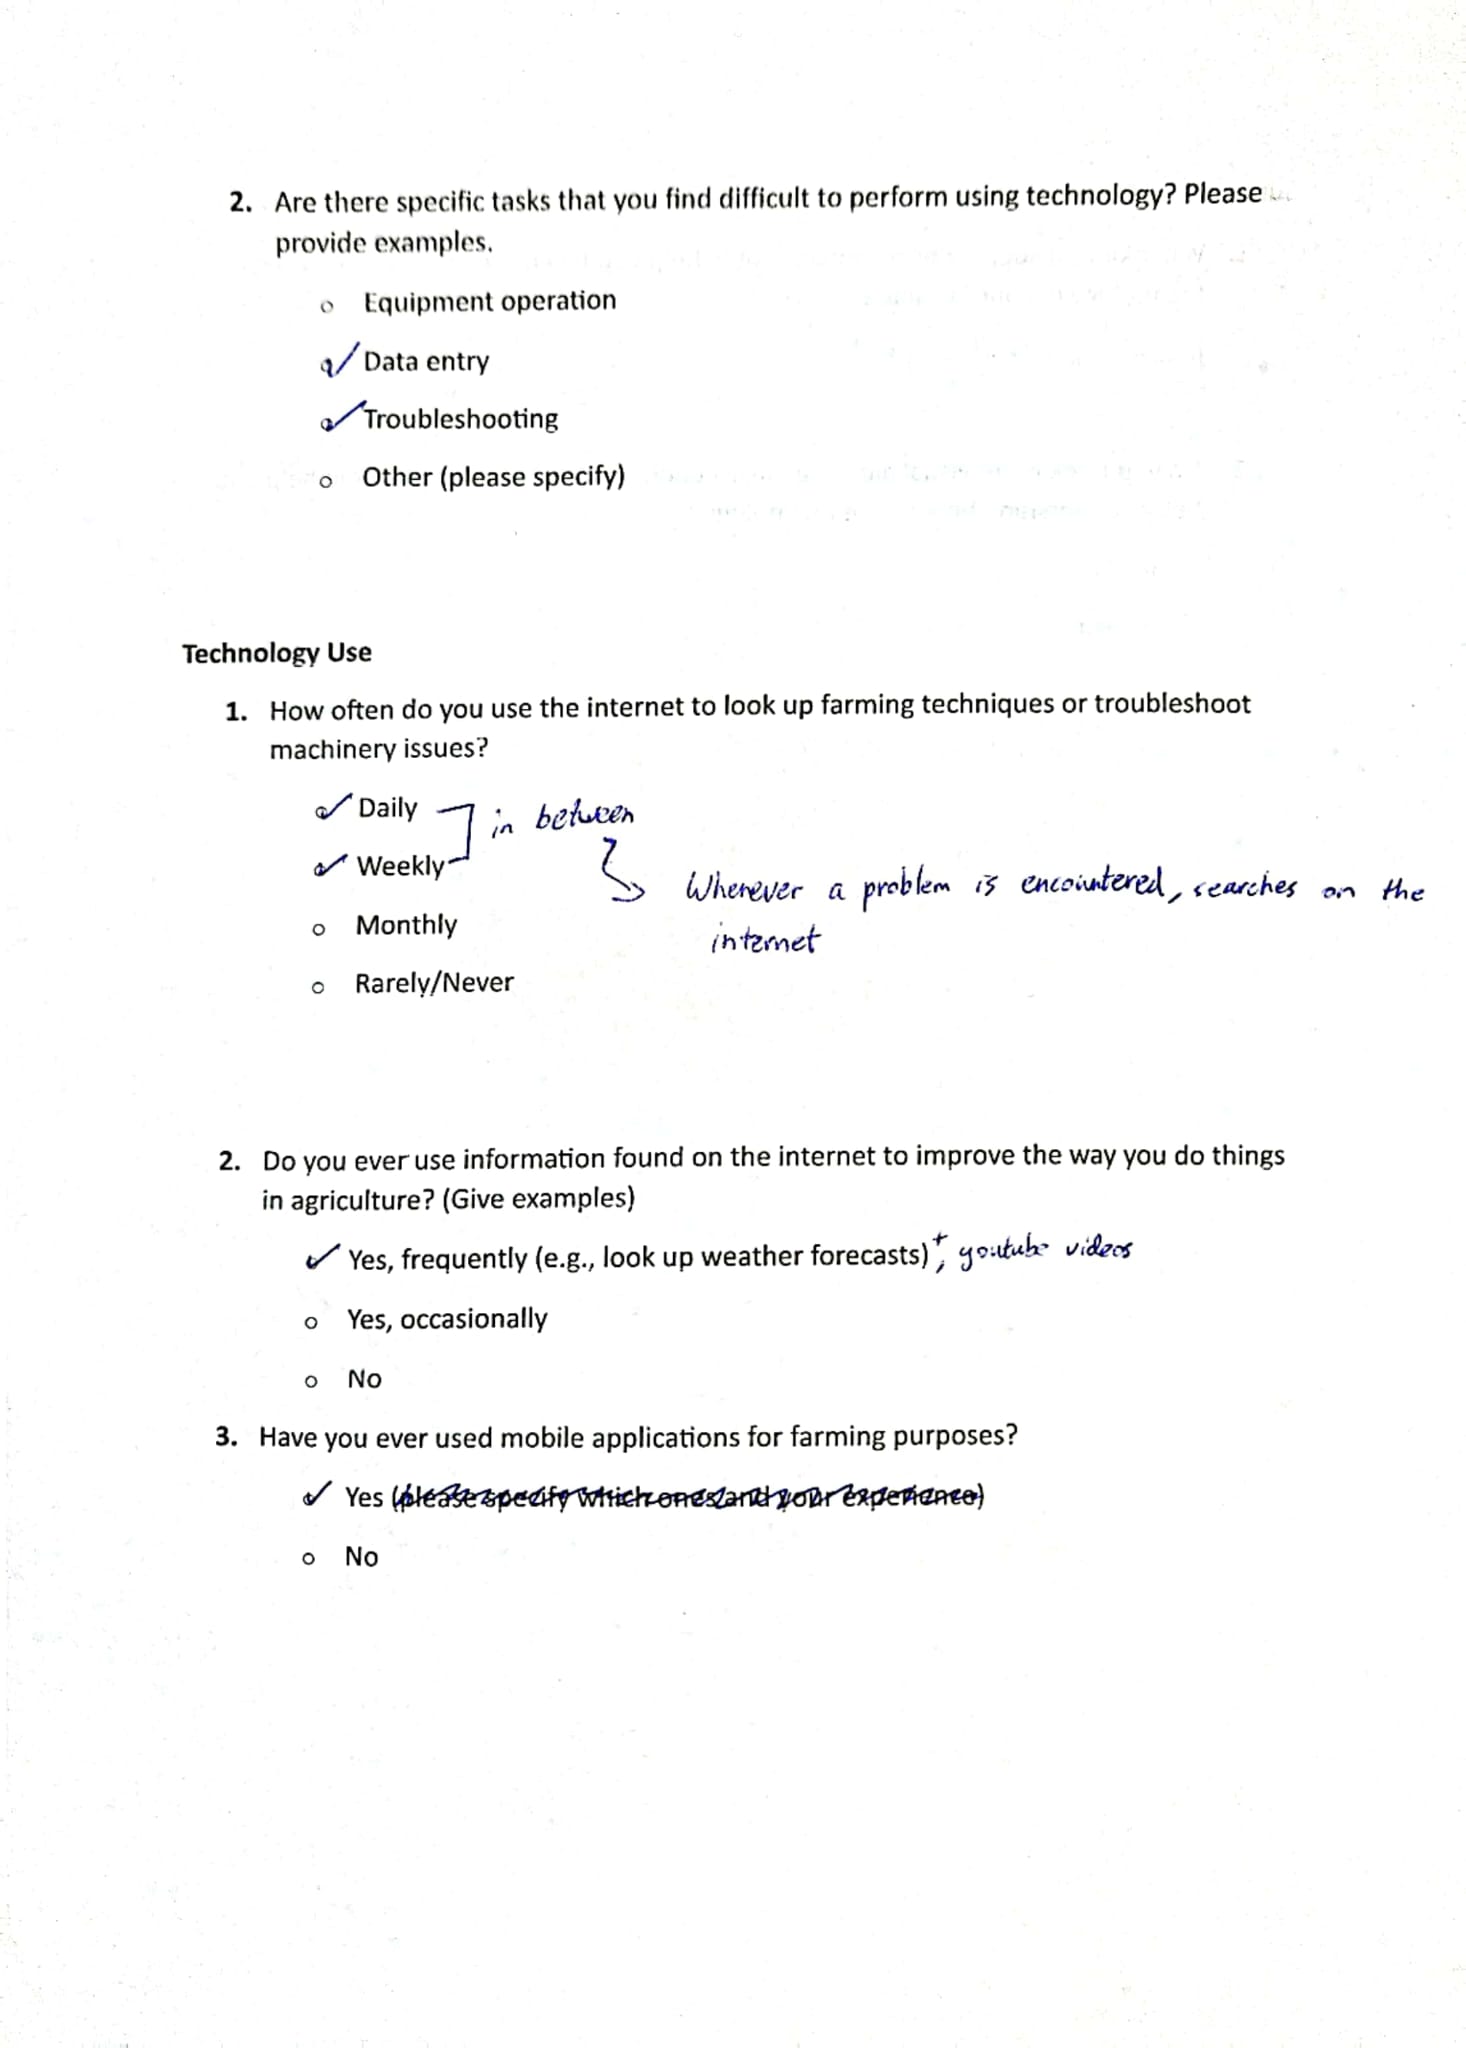 2. Are there specific tasks that you find difficult to perform using technology? Please
provide examples.
o Equipment operation
✓ Data entry
✓ Troubleshooting
o Other (please specify)
Technology Use
1. How often do you use the internet to look up farming techniques or troubleshoot
machinery issues?
✓ Daily
in between
✓ Weekly
Wherever a problem is encountered, searches on the
internet
o Monthly
o Rarely/Never
2. Do you ever use information found on the internet to improve the way you do things
in agriculture? (Give examples)
✓ Yes, frequently (e.g., look up weather forecasts)+, youtube videos
o Yes, occasionally
o No
3. Have you ever used mobile applications for farming purposes?
✓ Yes (please specify which ones and your experience)
o No